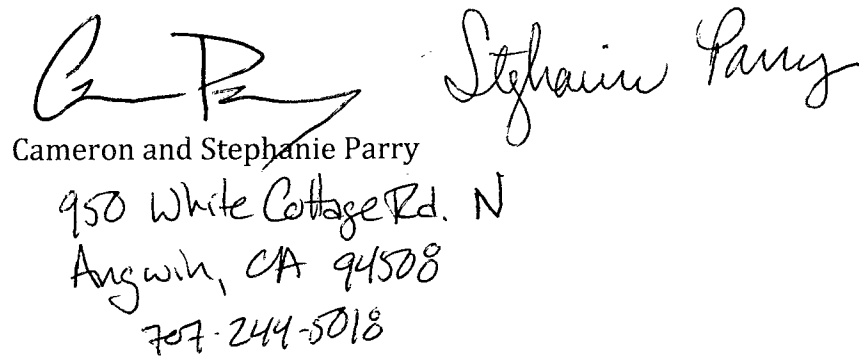 Stephanie Parry
Cameron and Stephanie Parry
950 White Cottage Rd. N
Angwin, CA 94508
707-244-5018